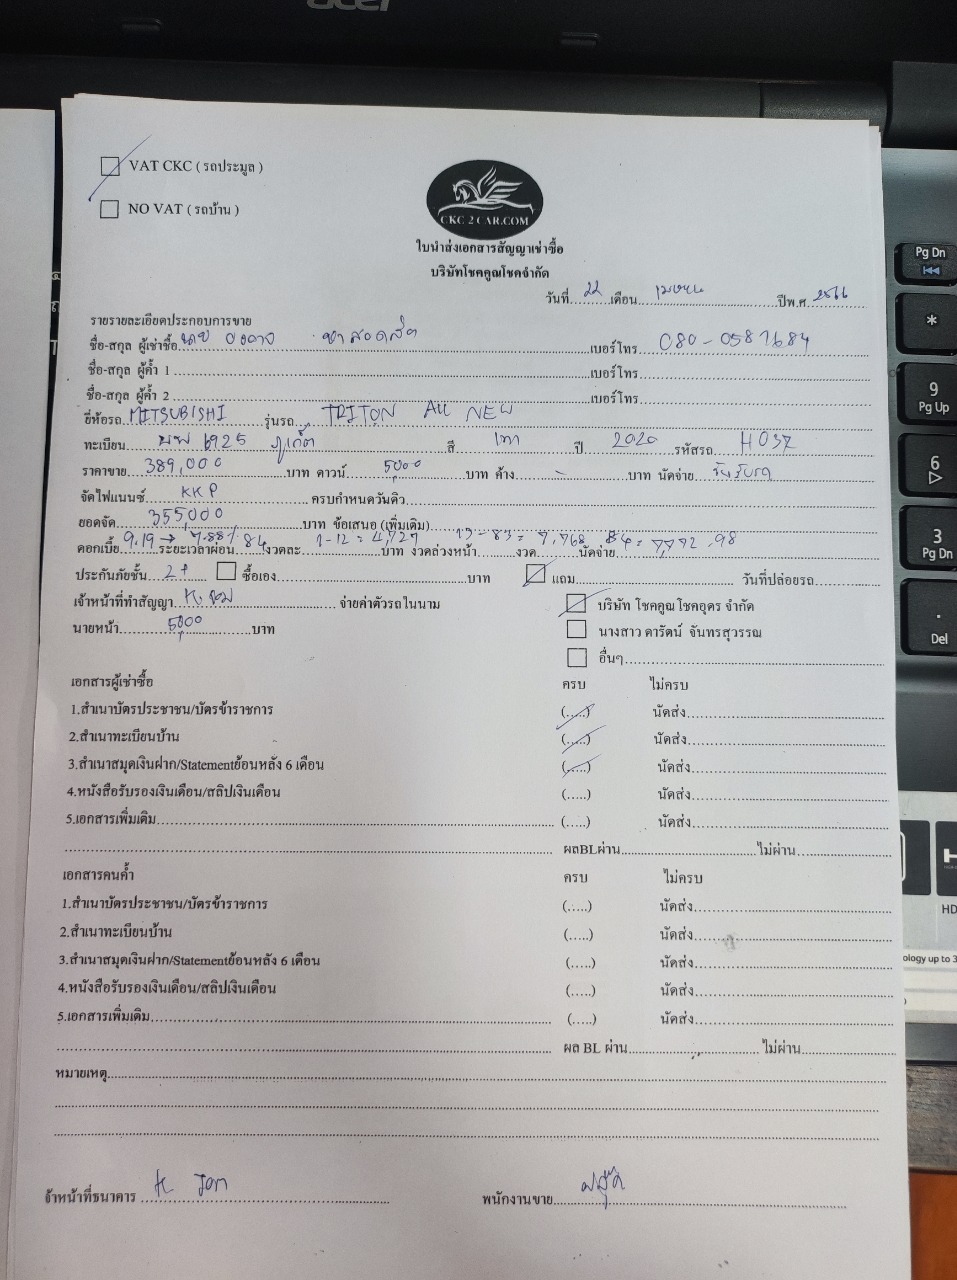 acer
VAT CKC ( รถประมูล )
NO VAT ( รถบ้าน )
CKC 2 CAR.COM
ใบนำส่งเอกสารสัญญาเช่าซื้อ
บริษัทโชคคูณโชคจำกัด
วันที่ 22 เดือน เมษายน ปีพ.ศ. 2566
รายรายละเอียดประกอบการขาย
ชื่อ-สกุล ผู้เช่าซื้อ นาย เบอร์โทร 080-0581684
ชื่อ-สกุล ผู้ค้ำ 1 เบอร์โทร
ชื่อ-สกุล ผู้ค้ำ 2 เบอร์โทร
ยี่ห้อรถ MITSUBISHI รุ่นรถ TRITON ALL NEW
ทะเบียน 6925 ภูเก็ต สี เทา ปี 2020 รหัสรถ H037
ราคาขาย 389,000 บาท ดาวน์ 5000 บาท ค้าง - บาท นัดจ่าย วันรับรถ
จัดไฟแนนซ์ KKP ครบกำหนดวันคิว
ยอดจัด 355,000 บาท ข้อเสนอ (เพิ่มเติม)
ดอกเบี้ย 9.19 → 7.88% ระยะเวลาผ่อน 84 งวดละ 1-12 = 4,727 บาท งวดล่วงหน้า 13-83 = 7,768 งวด 84 = 7,792.98 นัดจ่าย
ประกันภัยชั้น 2+ ซื้อเอง บาท แถม วันที่ปล่อยรถ
เจ้าหน้าที่ทำสัญญา จ่ายค่าตัวรถในนาม บริษัท โชคคูณโชคอุดร จำกัด
นายหน้า 5000 บาท นางสาว ดารัตน์ จันทรสุวรรณ
อื่นๆ
เอกสารผู้เช่าซื้อ ครบ ไม่ครบ
1.สำเนาบัตรประชาชน/บัตรข้าราชการ (.....) นัดส่ง
2.สำเนาทะเบียนบ้าน (.....) นัดส่ง
3.สำเนาสมุดเงินฝาก/Statementย้อนหลัง 6 เดือน (.....) นัดส่ง
4.หนังสือรับรองเงินเดือน/สลิปเงินเดือน (.....) นัดส่ง
5.เอกสารเพิ่มเติม (.....) นัดส่ง
ผลBLผ่าน ไม่ผ่าน
เอกสารคนค้ำ ครบ ไม่ครบ
1.สำเนาบัตรประชาชน/บัตรข้าราชการ (.....) นัดส่ง
2.สำเนาทะเบียนบ้าน (.....) นัดส่ง
3.สำเนาสมุดเงินฝาก/Statementย้อนหลัง 6 เดือน (.....) นัดส่ง
4.หนังสือรับรองเงินเดือน/สลิปเงินเดือน (.....) นัดส่ง
5.เอกสารเพิ่มเติม (.....) นัดส่ง
ผล BL ผ่าน ไม่ผ่าน
หมายเหตุ
จ้าหน้าที่ธนาคาร พนักงานขาย
Pg Dn
*
9
Pg Up
6
3
Pg Dn
.
Del
HD
ology up to 3